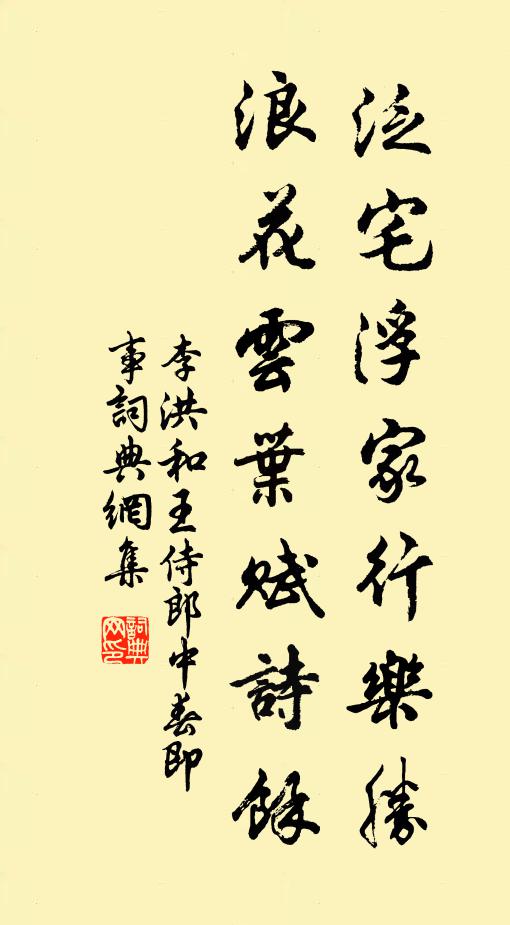 泛宅浮家行樂勝
浪花雲葉賦詩餘
李洪和王侍郎中春即
事詞典網集
詞典
网印